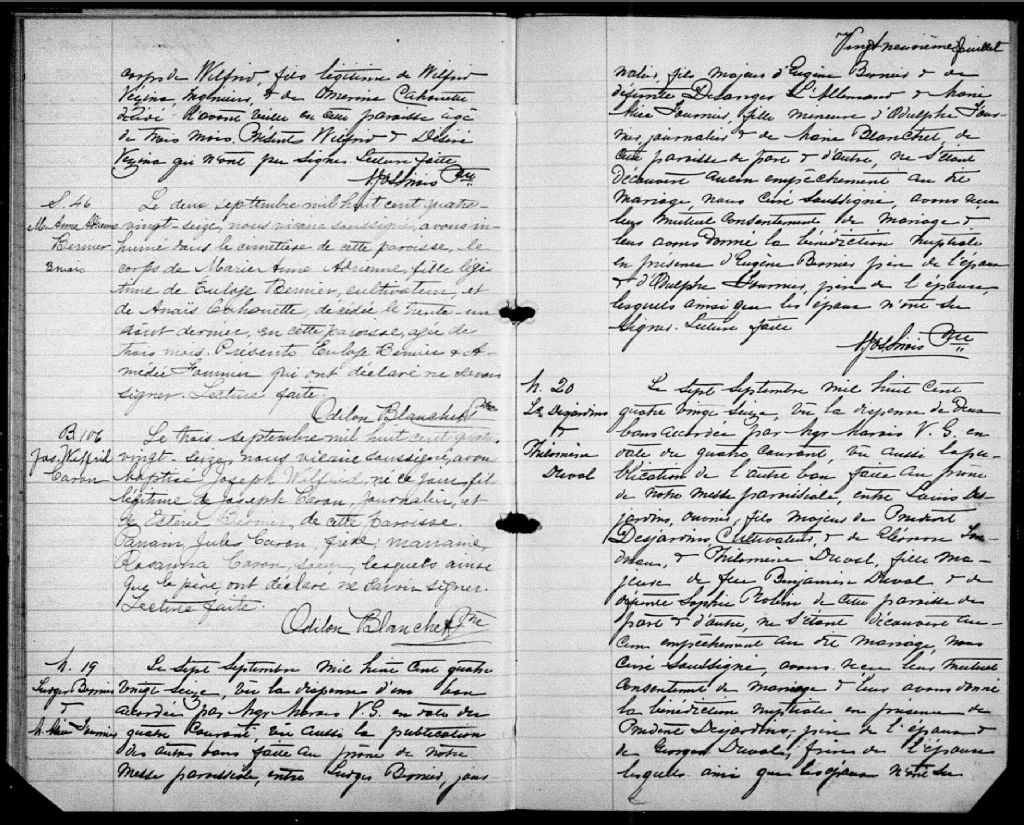 corps de Wilfrid, fils légitime de Wilfrid
Vézina, Ingénieur, & de Amerina Cahouette
avant veille en cette paroisse âgé
de trois mois. Présents Wilfrid & Désiré
Vezina qui n'ont pu signer. Lecture faite
Ptre
S. 46
M. Anne Adrienne
Bernier
3 mois
Le deux septembre mil huit cent quatre-
vingt-seize, nous vicaire soussigné, avons in-
humé dans le cimetière de cette paroisse, le
corps de Marie Anne Adrienne, fille légi-
time de Euloge Bernier, cultivateur, et
de Anaïs Cahouette, décédée le trente-un
août dernier, en cette paroisse, agée de
trois mois. Présents Euloge Bernier & A-
médée Fournier qui ont déclaré ne savoir
signer. Lecture faite.
Odilon Blanchet Ptre
B. 106
Jos. Wilfrid
Caron
Le trois septembre mil huit cent quatre-
vingt-seize, nous vicaire soussigné, avons
baptisé Joseph Wilfrid, né ce jour, fils
légitime de Joseph Caron, journalier, et
de Estérie Bernier, de cette paroisse.
Parrain, Jules Caron, frère, marraine,
Rosanna Caron, soeur, lesquels ainsi
que le père, ont déclaré ne savoir signer.
Lecture faite.
Odilon Blanchet Ptre
M. 19
Bernier
&
M. Alice Fournier
Le sept Septembre mil huit cent quatre
vingt-seize, vu la dispense d'un ban
accordée par Mgr Marois V. G. en date du
quatre courant, vu aussi la publication
des autres bans faite au prône de notre
messe paroissiale, entre Bernier, jour-
Vingt neuvième feuillet
nalier, fils majeur d'Eugène Bernier & de
défunte Desanges L'Allemand & Marie
Alice Fournier, fille mineure d'Adulphe Four-
nier, journalier & de Marie Blanchet, de
cette paroisse de part & d'autre, ne s'étant
découvert aucun empêchement au dit
mariage, nous Curé Soussigné, avons reçu
leur mutuel consentement de mariage &
leur avons donné la bénédiction nuptiale
en présence d'Eugène Bernier père de l'époux
& d'Adulphe Fournier, père de l'épouse,
lesquels ainsi que les époux n'ont su
signer. Lecture faite
Ptre
M. 20
Ls Desjardins
&
Philomène
Duval
Le sept Septembre mil huit cent
quatre vingt seize, vu la dispense de deux
bans accordée par Mgr Marois V. G. en
date du quatre courant, vu aussi la pu-
blication de l'autre ban faite au prône
de notre messe paroissiale, entre Louis Des-
jardins, ouvrier, fils majeur de Prudent
Desjardins Cultivateur, & de Eléonore
& Philomène Duval, fille ma-
jeure de feu Benjamin Duval & de
défunte Sophie Robin de cette paroisse de
part & d'autre, ne s'étant découvert au-
cun empêchement au dit mariage, nous
Curé Soussigné, avons reçu leur mutuel
consentement de mariage & leur avons donné
la bénédiction nuptiale en présence de
Prudent Desjardins, père de l'époux &
de Georges Duval, frère de l'épouse
lesquels ainsi que les époux n'ont su